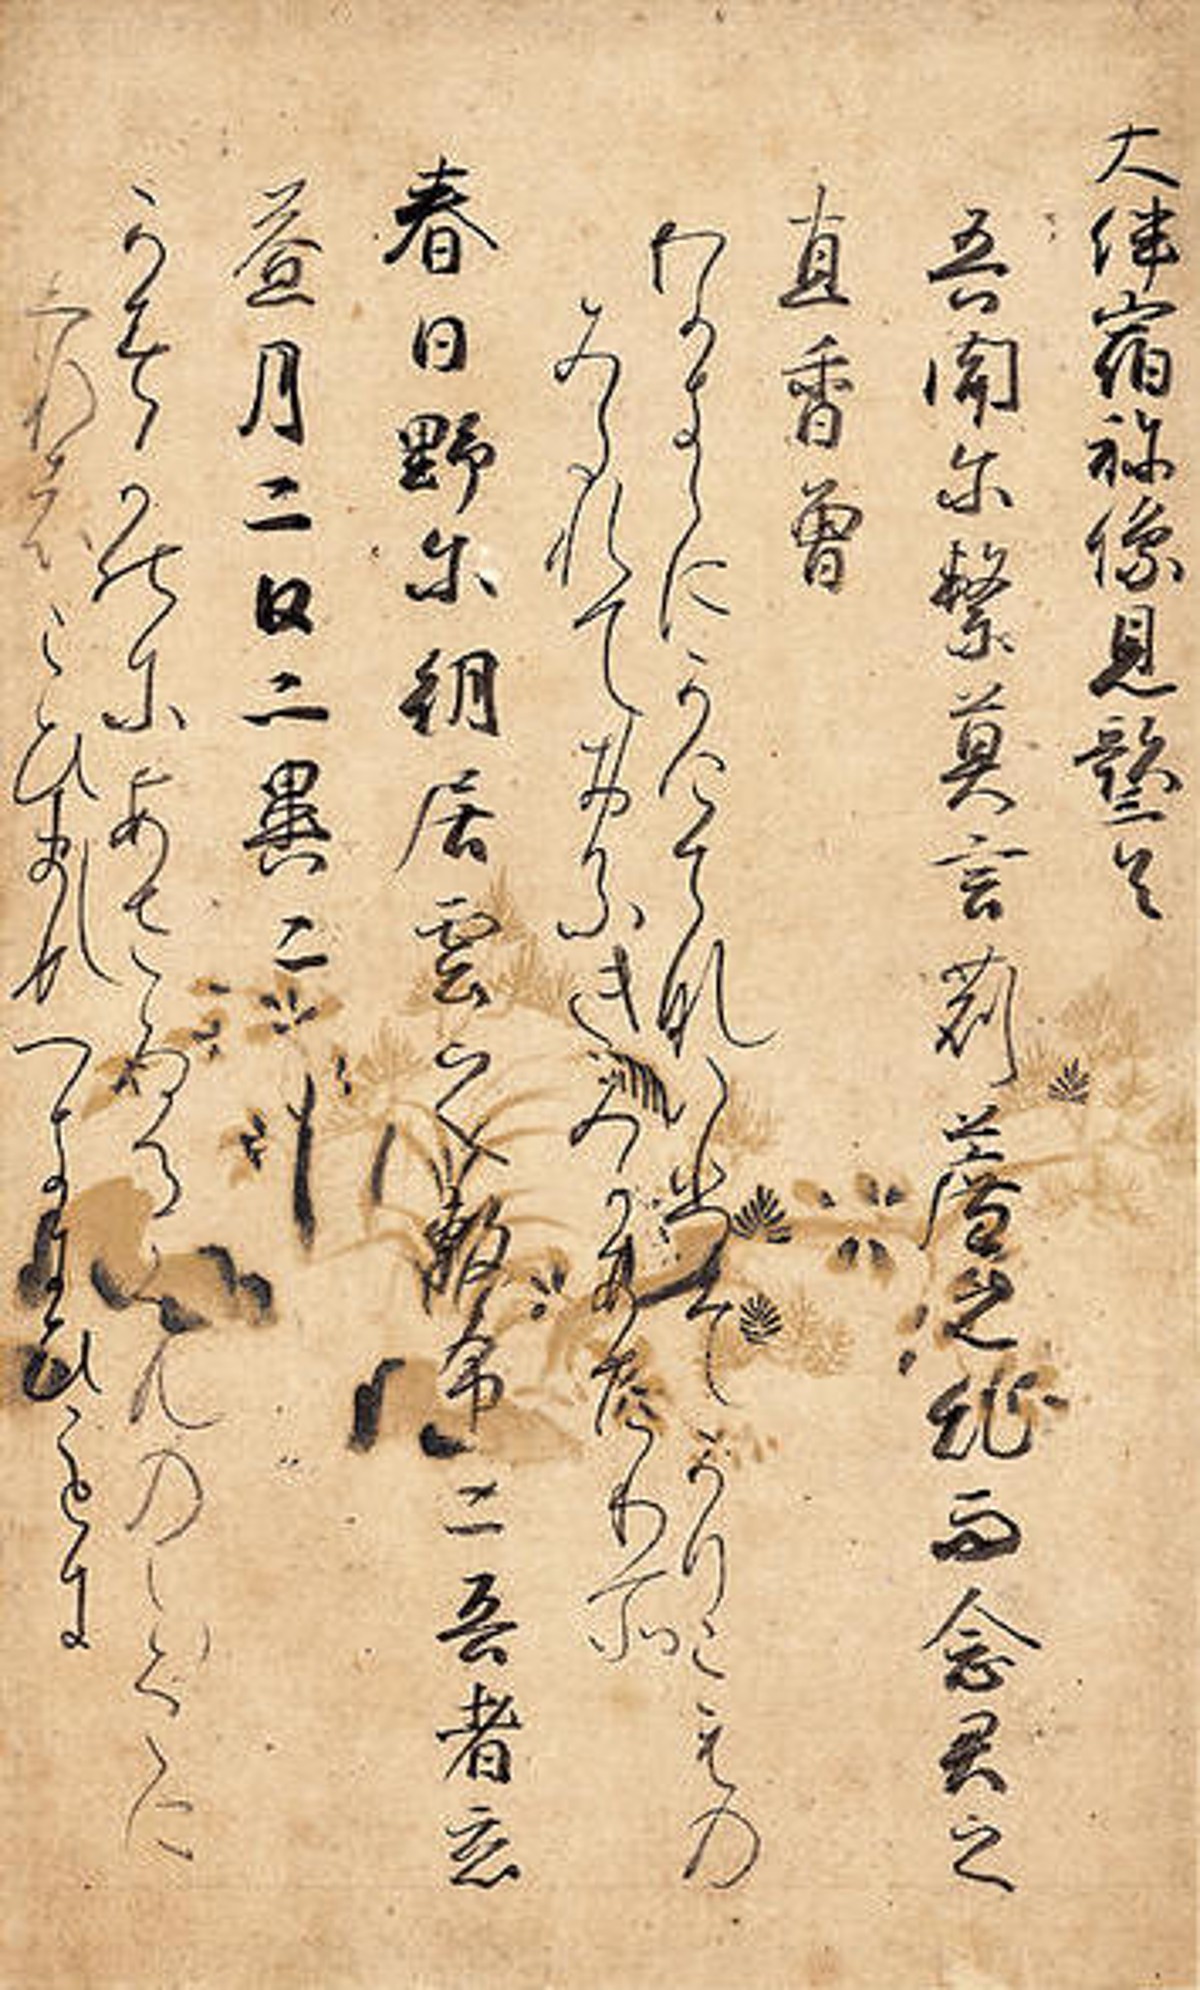 大伴宿祢像見謌三首
吾聞尓繋莫言苅薦之乱而念君之
直香曽
わかまゝにかけてないひそかりこもの
みたれておもふきみか
春日野尓朝居雲之敷布二吾者恋
益月二日二異二
かすかのにあさゐるくものしくしくに
われはこひま つき ひことに